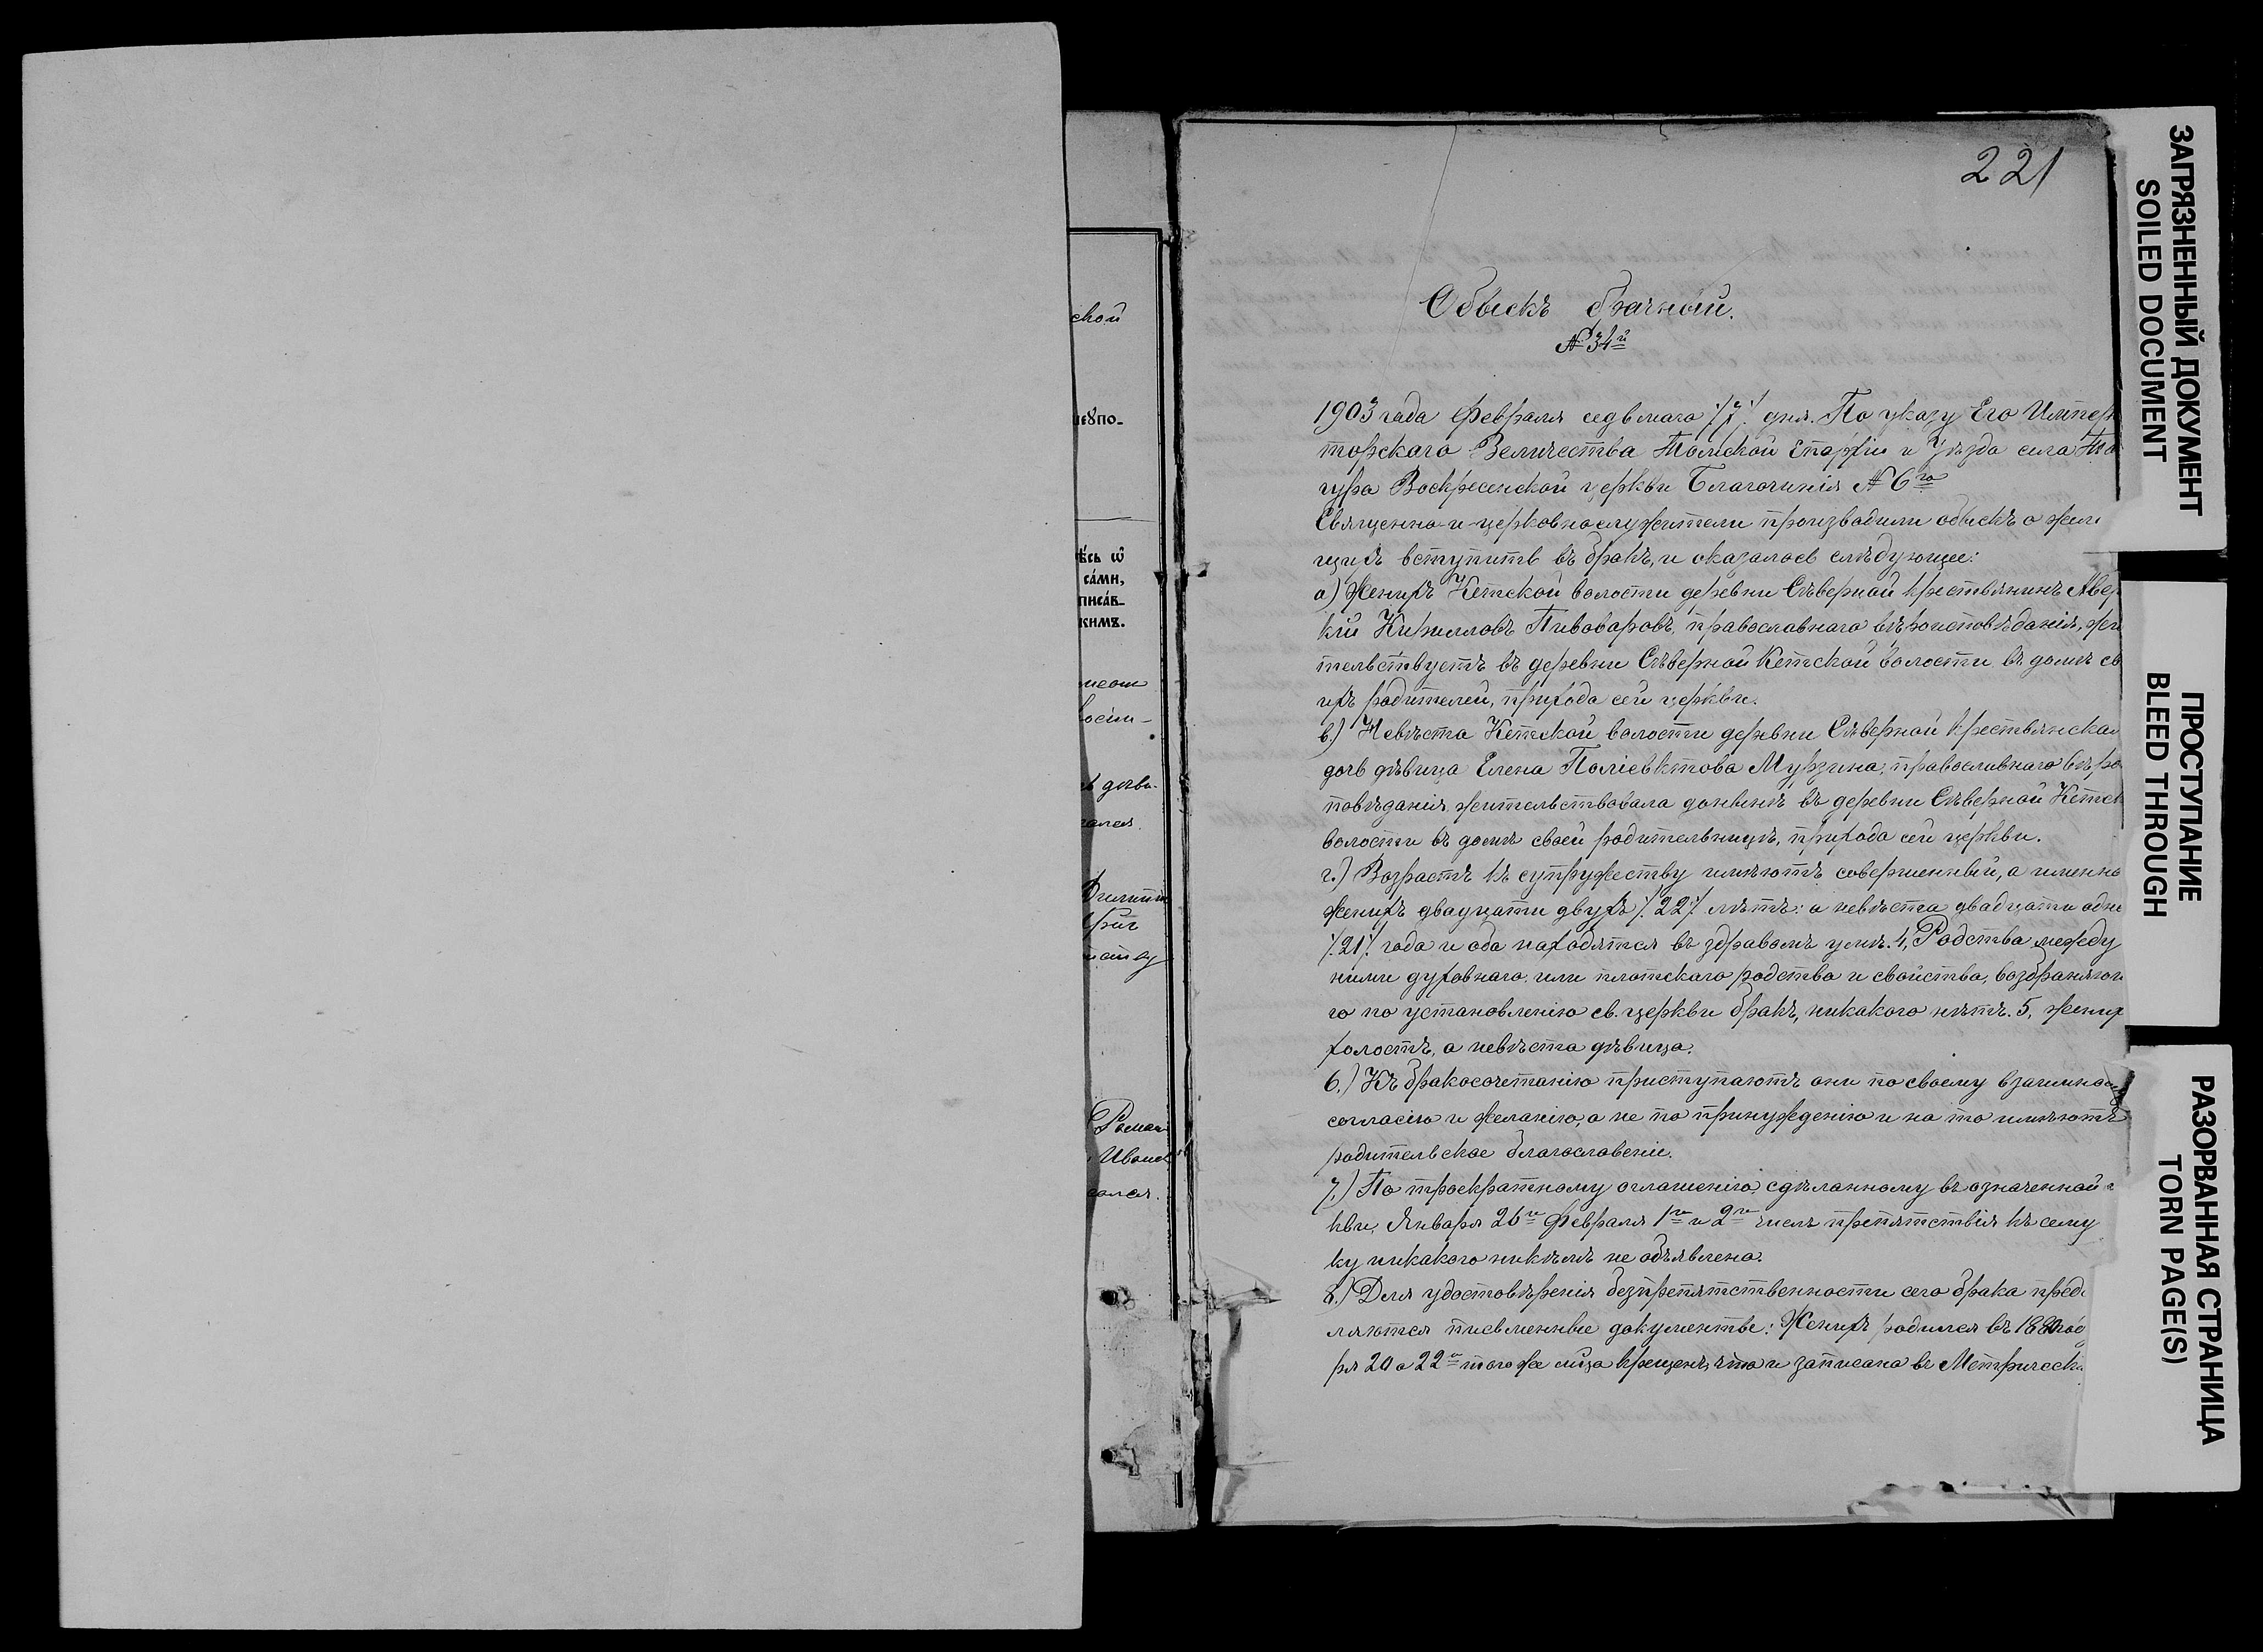 221
Обыскъ брачный.
№ 34й
1903 года Февраля седьмаго /7/ дня. По указу Его Импер
торскаго Величества Томской Епархіи и Уѣзда села То
гура Воскресенской церкви Благочинія № 6го
Священно-и-церковнослужители производили обыскъ о жела
щихъ вступить въ бракъ, и оказалось слѣдующее:
а) Женихъ Кетской волости деревни Сѣверной крестьянинъ Авер
кій Кирилловъ Пивоваровъ, православнаго вѣроисповѣданія, жи
тельствуетъ въ деревни Сѣверной Кетской волости въ домѣ сво
ихъ родителей, прихода сей церкви.
в) Невѣста Кетской волости деревни Сѣверной Крестьянская
дочь дѣвица Елена Поліевктова Мурзина, православнаго вѣро
повѣданія жительствовала донынѣ въ деревни Сѣверной Кетск
волости въ домѣ своей родительницѣ, прихода сей церкви.
г.) Возрастъ къ супружеству имѣютъ совершенный, а именно
женихъ двадцати двухъ /22/ лѣтъ: а невѣста двадцати одно
/21/ года и оба находятся въ здравомъ умѣ. 4, Родства между
ними духовнаго или плотскаго родства и свойства, возбраняющ
го по установленію св. церкви бракъ, никакого нѣтъ. 5, жених
холостъ, а невѣста дѣвица.
6.) Къ бракосочетанію приступаютъ они по своему взаимно
согласію и желанію, а не по принужденію и на то имѣютъ
родительское благословеніе.
7.) По троекратному оглашенію, сдѣланному въ означенной
кви, Января 26го Февраля 1го и 2го числъ препятствія къ сему
ку никакого никѣмъ не объявлено.
8.) Для удостовѣренія безпрепятственности сего брака пред
ляются письменные документы: Женихъ родился въ 1880 год
ря 20 а 22го того же мца крещенъ, что и записано въ Метрическ
ской
неѹпо-
ѣсь ѡ
сами,
писав-
кимъ.
Роман
Иван
ЗАГРЯЗНЕННЫЙ ДОКУМЕНТ
SOILED DOCUMENT
ПРОСТУПАНИЕ
BLEED THROUGH
РАЗОРВАННАЯ СТРАНИЦА
TORN PAGE(S)